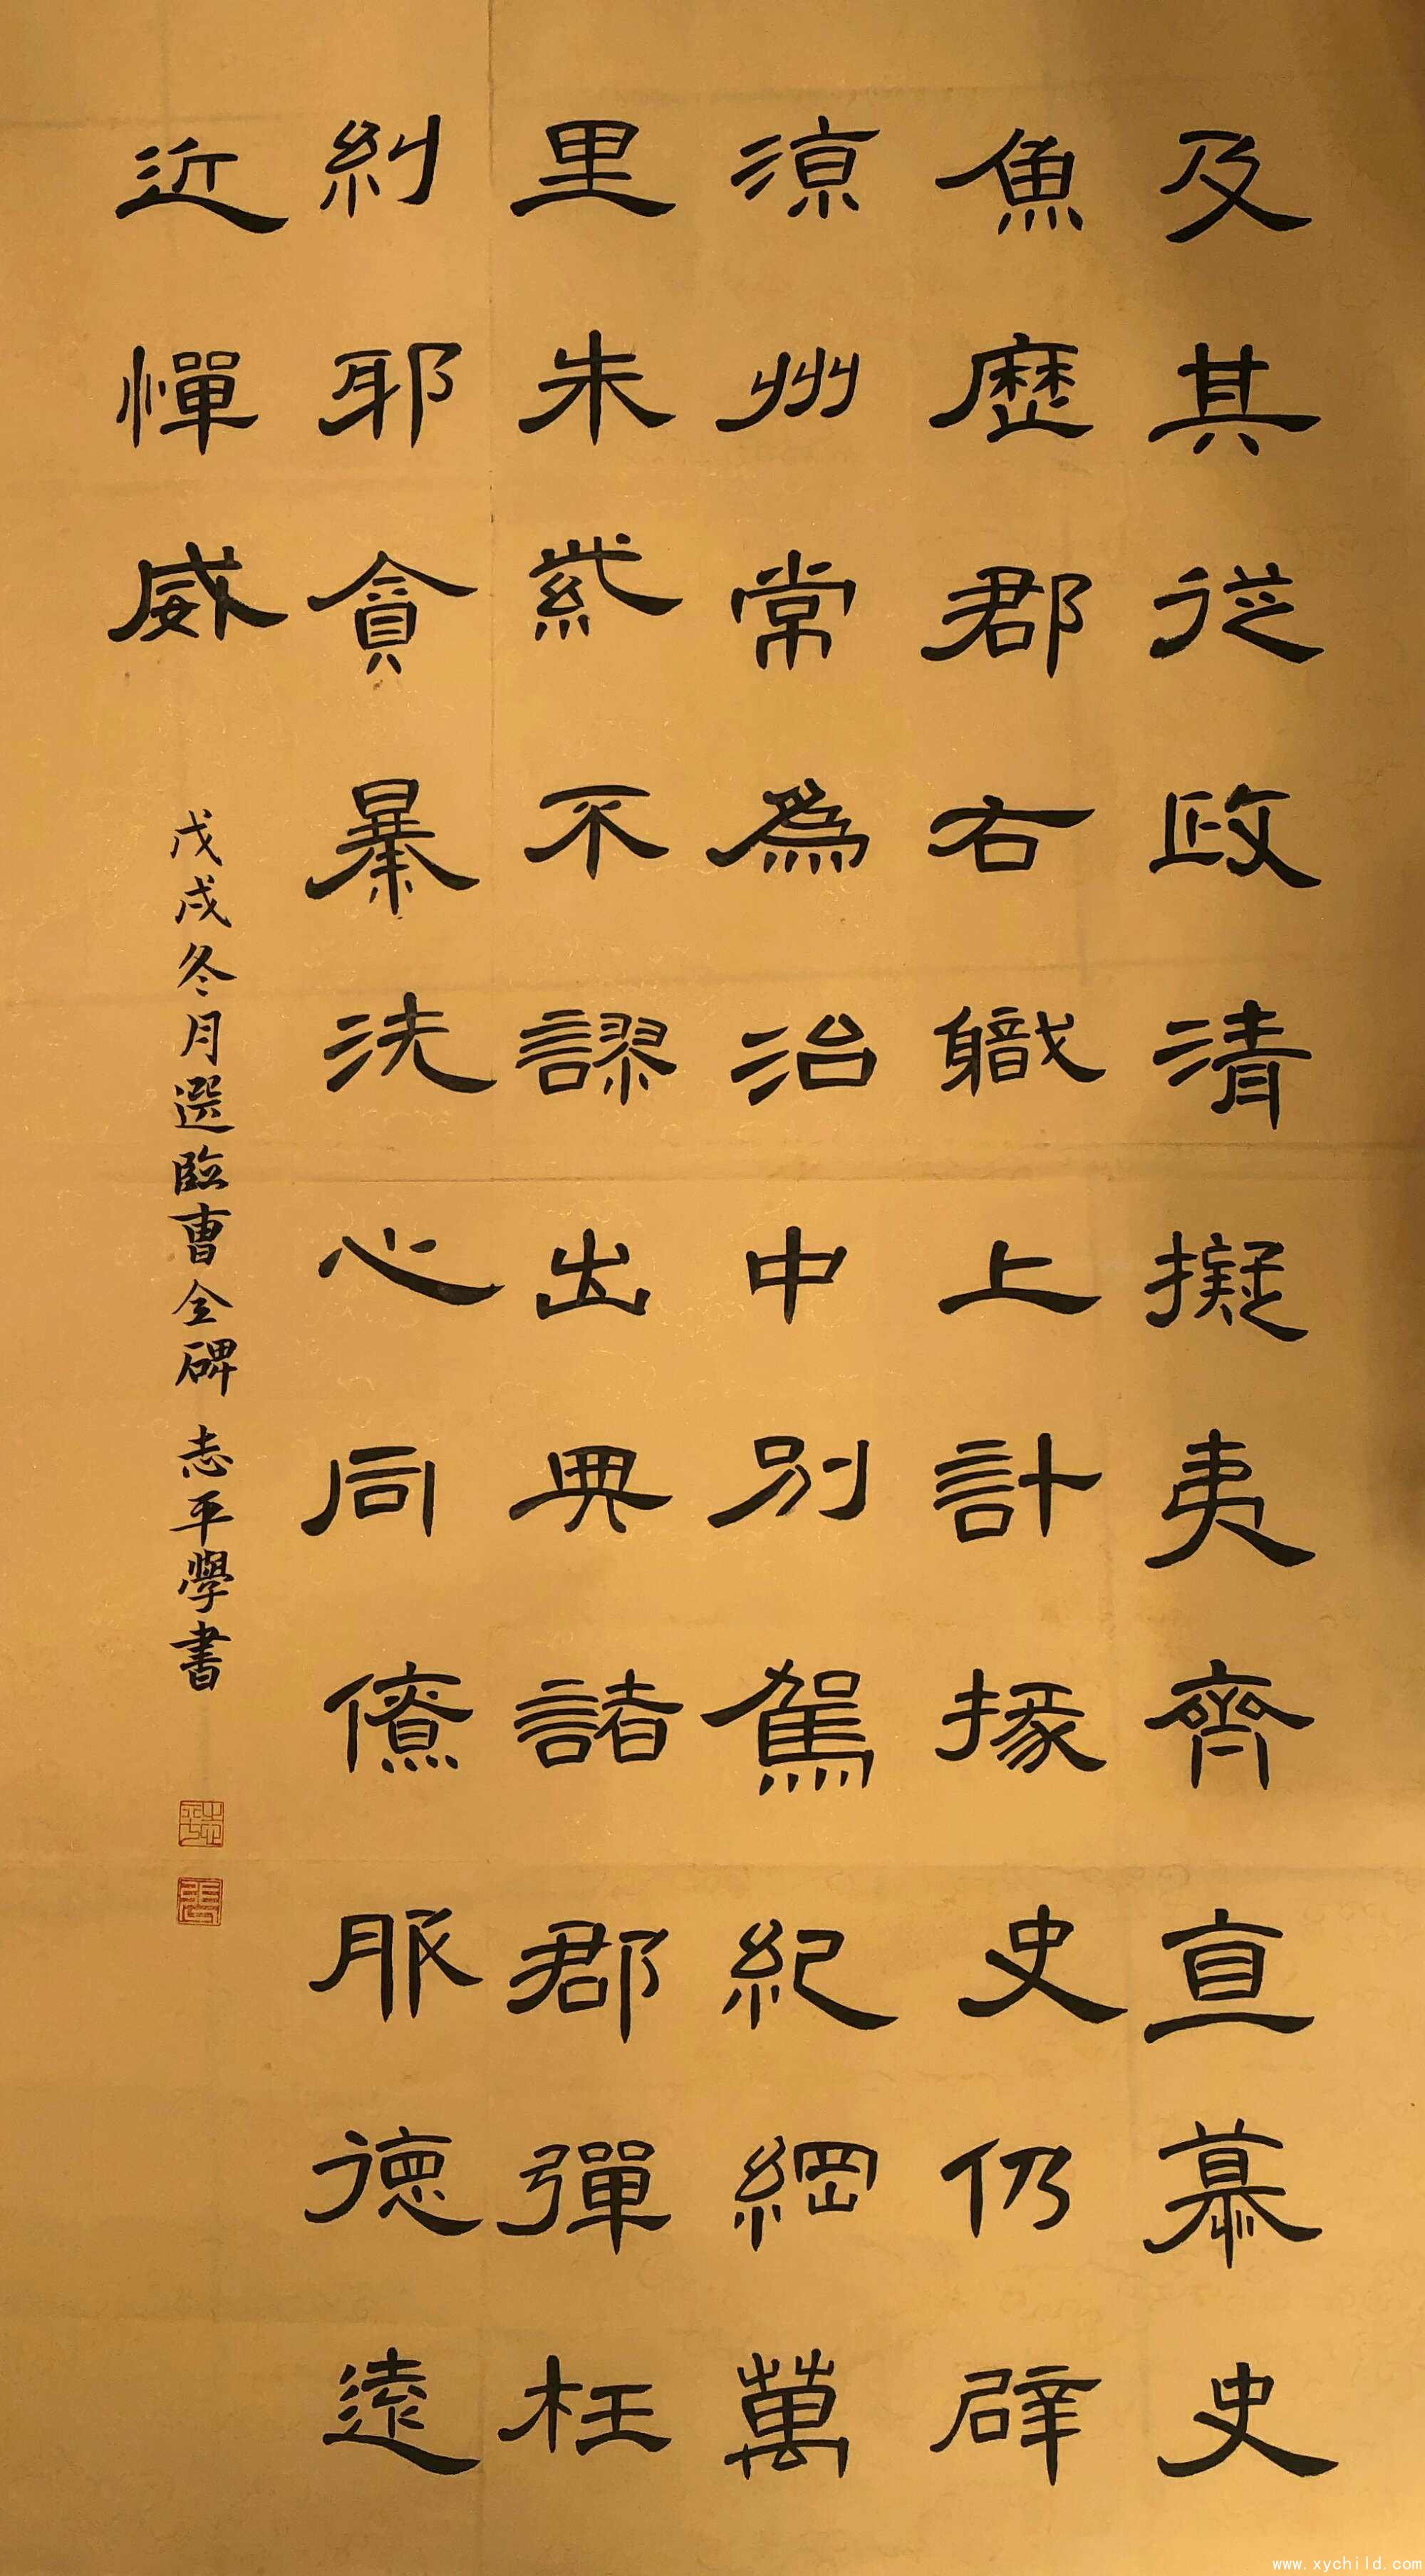 及其從政清擬夷齊直慕史
魚歷郡右職上計掾史仍辟
涼州常為治中別駕紀綱萬
里朱紫不謬出典諸郡彈枉
糾邪貪暴洗心同僚服德遠
近憚威
戊戌冬月選臨曹全碑 志平學書
www.xychild.com